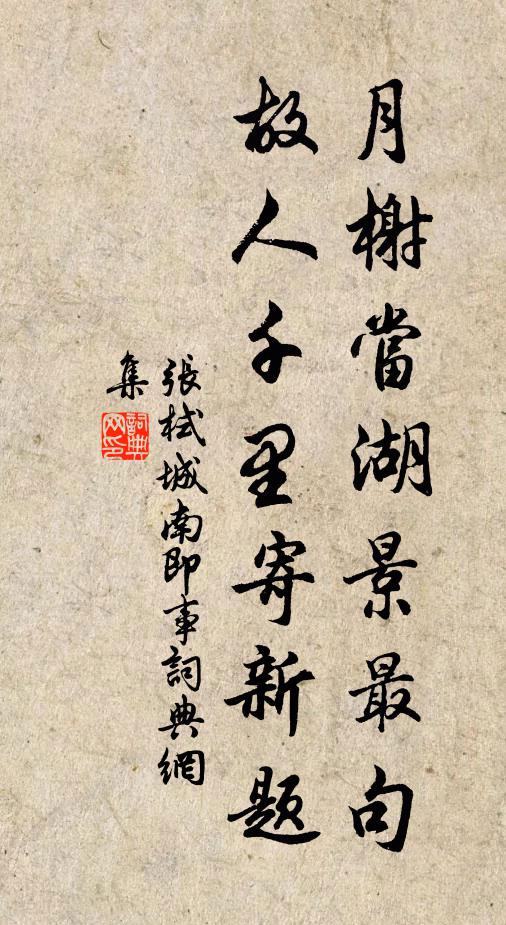 月榭當湖景最句
故人千里寄新題
張栻城南即事詞典網
集
詞典网印